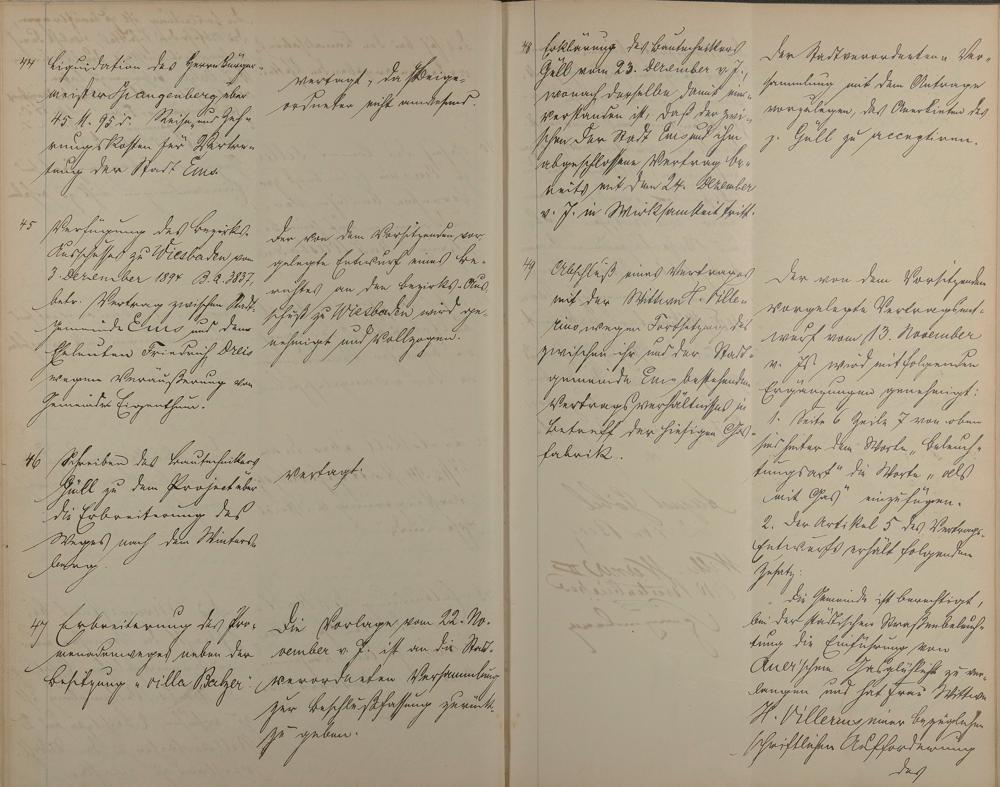 44 Liquidation des Herrn Bürger-
meister Spangenberg über
45 M. 95 d. Reise und Zeh-
rungskosten für Vertre-
tung der Stadt Ems
vertagt, da Beige-
ordneter nicht anwesend.
45 Verfügung des Bezirks-
Ausschusses zu Wiesbaden vom
3. Dezember 1894 B. A. 3837,
betr. Vertrag zwischen Stadt-
gemeinde Ems und den
Eheleuten Friedrich Dreis
wegen Veräußerung von
Gemeinde Eigenthum.
Der von dem Vorsitzenden vor-
gelegte Entwurf eines Be-
richtes an den Bezirks-Aus-
schuß zu Wiesbaden wird ge-
nehmigt und vollzogen.
46 Schreiben des Bautechnikers
Güll zu dem Project über
die Erbreiterung des
Weges nach dem Winters-
berg.
vertagt.
47 Erbreiterung des Pro-
menadenweges neben der
Besitzung "Villa Balzer"
Die Vorlage vom 22. No-
vember v. J. ist an die Stadt-
verordneten Versammlung
zur Beschlußfassung zurück-
zu geben.
48 Erklärung des Bautechnikers
Güll vom 23. Dezember v. J.,
wonach derselbe damit ein-
verstanden ist, daß der zwi-
schen der Stadt Ems und ihm
abgeschlossene Vertrag be-
reits mit dem 24. Dezember
v. J. in Wirksamkeit tritt.
Der Stadtverordneten-Ver-
sammlung mit dem Antrage
vorzulegen, das Anerbieten des
p. Güll zu acceptiren.
49 Abschluß eines Vertrages
mit der Wittwe H. Ville-
rius wegen Fortsetzung des
zwischen ihr und der Stadt-
gemeinde Ems bestehenden
Vertragsverhältnisses in
Betreff der hiesigen Gas-
fabrik.
Der von dem Vorsitzenden
vorgelegte Vertragsent-
wurf vom 13. November
v. Js wird mit folgenden
Ergänzungen genehmigt:
1. Seite 6 Zeile 7 von oben
ist hinter dem Worte "Beleuch-
tungsart" die Worte "als
mit Gas" einzufügen.
2. Der Artikel 5 des Vertrags-
Entwurfs erhält folgenden
Zusatz:
Die Gemeinde ist berechtigt,
bei der städtischen Straßenbeleuch-
tung die Einführung von
Auer'schem Gasglühlicht zu ver-
langen und hat Frau Wittwe
H. Villerius einer bezüglichen
schriftlichen Aufforderung
des